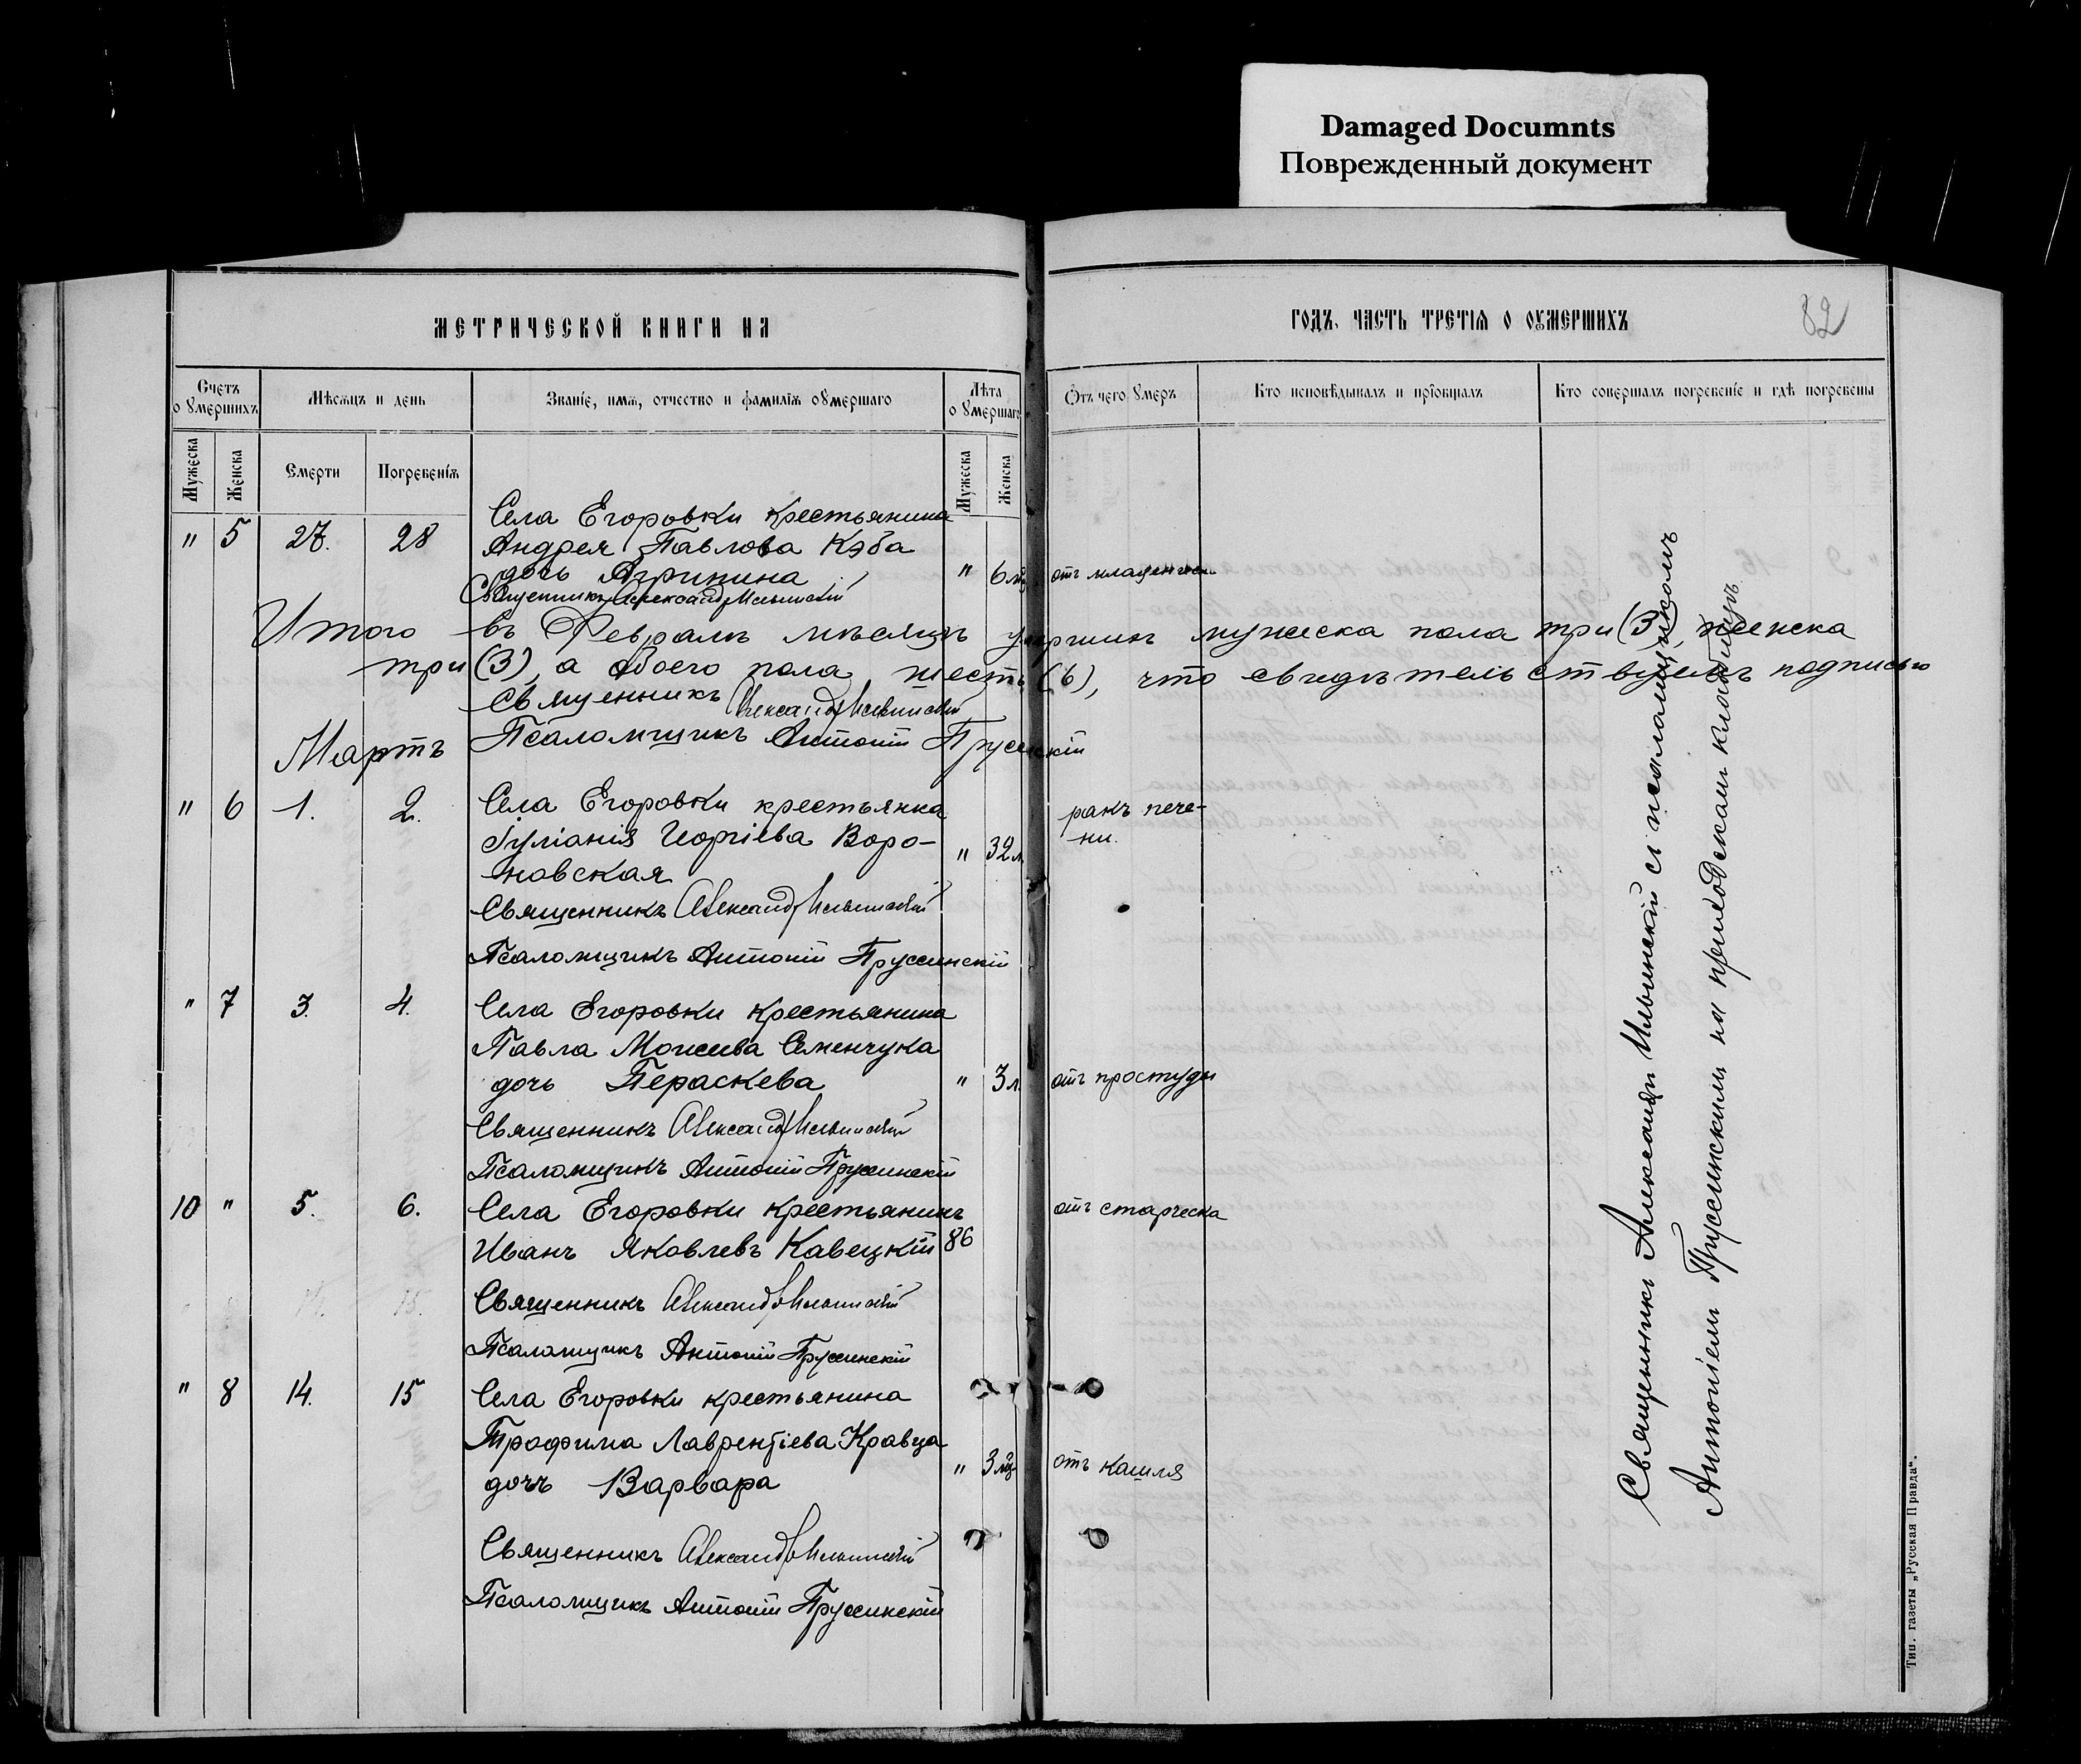 Damaged Documnts
Поврежденный документ
МЕТРИЧЕСКОЙ КНИГИ НА
Счетъ о умершихъ
Мѣсяцъ и день
Званіе, имя, отчество и фамилія оумершаго
Лѣта оумершаго
Мужеска
Женска
Смерти
Погребенія
Мужеска
Женска
ГОДЪ, ЧАСТЬ ТРЕТІЯ О ОУМЕРШИХЪ
82
Отъ чего умеръ
Кто исповѣдывалъ и пріобщалъ
Кто совершалъ погребеніе и гдѣ погребены
Села Егоровки крестьянина
" 5 27. 28 Андрея Павлова Кэба
дочь Агрипина " 6 отъ
Священникъ Александръ Ильинскій
Итого въ Февралѣ мѣсяцѣ умершихъ мужеска пола три (3), женска
три (3), а обоего пола шесть (6), что свидѣтельствуемъ подписью
Священникъ Александръ Ильинскій
Мартъ Псаломщикъ Антоній Пруссинскій
" 6 1. 2. Села Егоровки крестьянка ракъ пече-
Іуліанія Георгіева Воро- " 32 л ни.
новская
Священникъ Александръ Ильинскій
Псаломщикъ Антоній Пруссинскій
" 7 3. 4. Села Егоровки крестьянина
Павла Моисеева Семенчука
дочь Параскева " 3 л отъ простуды
Священникъ Александръ Ильинскій
Псаломщикъ Антоній Пруссинскій
10 " 5. 6. Села Егоровки крестьянинъ отъ старческа
Иванъ Яковлевъ Кавецкій 86
Священникъ Александръ Ильинскій
Псаломщикъ Антоній Пруссинскій
" 8 14. 15 Села Егоровки крестьянина
Трофима Лаврентіева Кравца
дочь Варвара " 3 отъ кашля
Священникъ Александръ Ильинскій
Псаломщикъ Антоній Пруссинскій
Священникъ Александръ Ильинскій съ псаломщикомъ
Антоніемъ Пруссинскимъ на приходскомъ кладбищѣ
Тип. газеты „Русская Правда“.